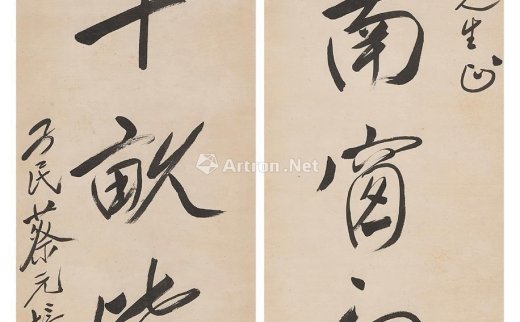 先生正
南窗
十畝
孑民蔡元培
Artron.Net